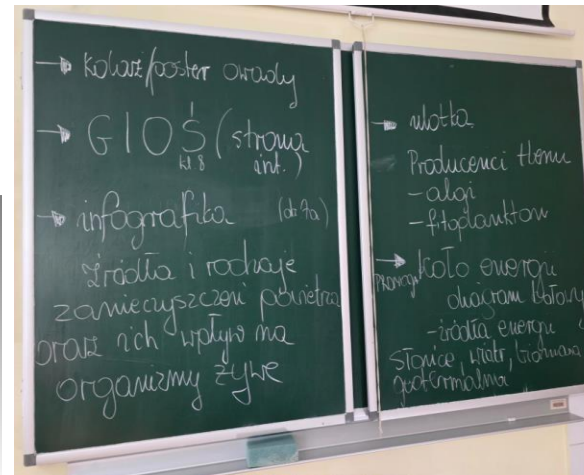 → kolaż/poster owady
→ GIOŚ (strona
kl 8 int.)
→ infografika (dla 7a)
źródła i rodzaje
zanieczyszczeń powietrza
oraz ich wpływ na
organizmy żywe
→ ulotka
Producenci tlenu
- algi
- fitoplankton
→ koło energii
diagram kołowy
- źródła energii
słońce, wiatr, biomasa
geotermalna